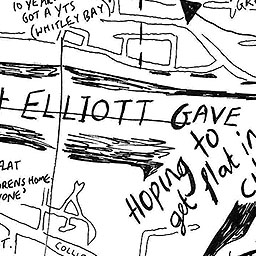 10 YEAR
GOT A YTS
(WHITLEY BAY)
ELLIOTT GAVE
HOPING to
get flat in
FLAT
DRENS HOME
COLLI